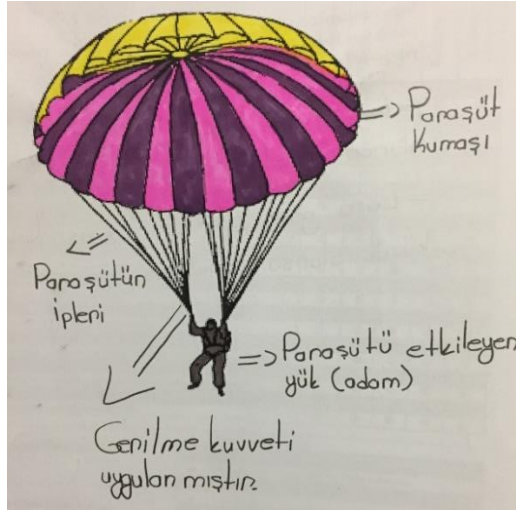 => Paraşüt
kumaşı
Paraşütün
ipleri
=> Paraşütü etkileyen
yük (adam)
Gerilme kuvveti
uygulanmıştır.